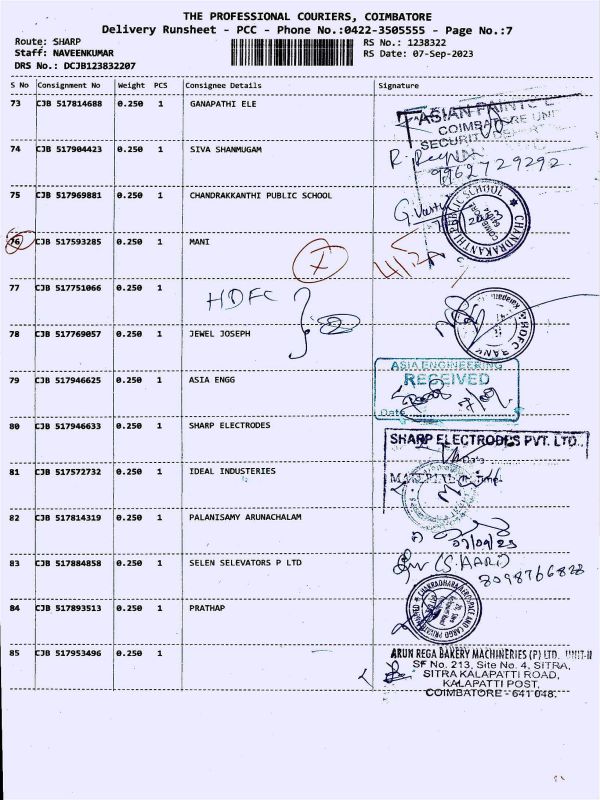 THE PROFESSIONAL COURIERS, COIMBATORE
Delivery Runsheet - PCC - Phone No.:0422-3505555 - Page No.:7
Route: SHARP RS No.: 1238322
Staff: NAVEENKUMAR RS Date: 07-Sep-2023
DRS No.: DCJB123832207
S No Consignment No Weight PCS Consignee Details Signature
73 CJB 517814688 0.250 1 GANAPATHI ELE
ASIAN PAINTS
COIMBATORE UNI
SECURITY
74 CJB 517904423 0.250 1 SIVA SHANMUGAM
9962729292
75 CJB 517969881 0.250 1 CHANDRAKKANTHI PUBLIC SCHOOL
CHANDRAKANTHI PUBLIC SCHOOL
76 CJB 517593285 0.250 1 MANI
77 CJB 517751066 0.250 1
HDFC
HDFC BANK
78 CJB 517769057 0.250 1 JEWEL JOSEPH
79 CJB 517946625 0.250 1 ASIA ENGG
ASIA ENGINEERING
RECEIVED
Date
80 CJB 517946633 0.250 1 SHARP ELECTRODES
SHARP ELECTRODES PVT. LTD.,
81 CJB 517572732 0.250 1 IDEAL INDUSTERIES
MATERIAL In Time
82 CJB 517814319 0.250 1 PALANISAMY ARUNACHALAM
07/09/23
83 CJB 517884858 0.250 1 SELEN SELEVATORS P LTD
8098766828
84 CJB 517893513 0.250 1 PRATHAP
85 CJB 517953496 0.250 1
ARUN REGA BAKERY MACHINERIES (P) LTD. UNIT-II
SF No. 213, Site No. 4, SITRA,
SITRA KALAPATTI ROAD,
KALAPATTI POST,
COIMBATORE - 641 048.